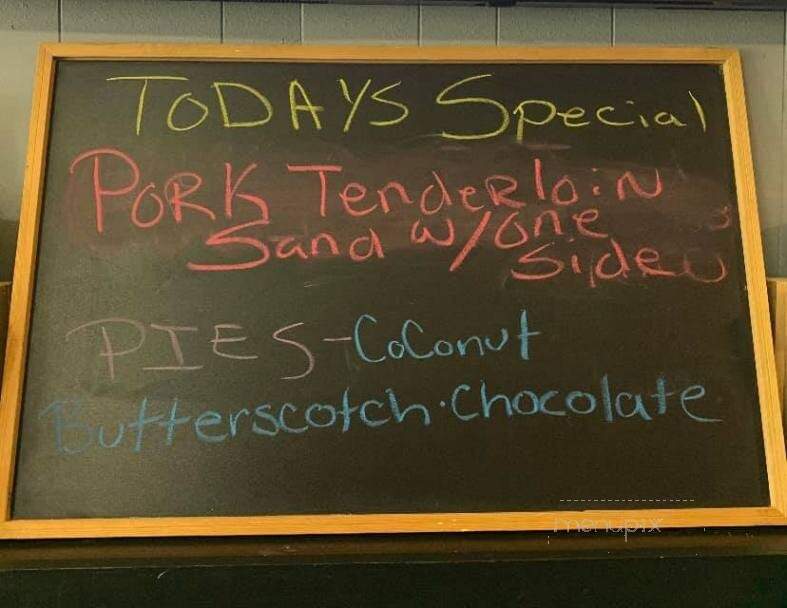 TODAYS Special
PORK TendeRloiN
Sand w/one
side
PIES-CoConut
Butterscotch·Chocolate
menupix